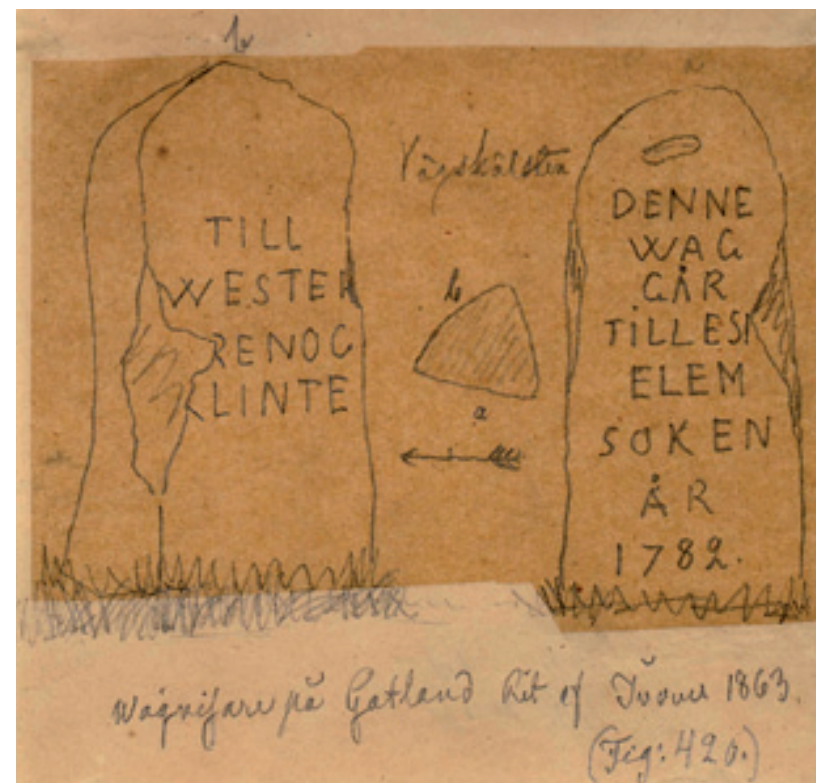 b
TILL
WESTER
RENOC
KLINTE
Vägskälsten
b
a
a
DENNE
WAG
GÅR
TILLESK
ELEM
SOKEN
ÅR
1782.
Wägvisare på Gotland Rit af 1863.
(Fig: 420.)